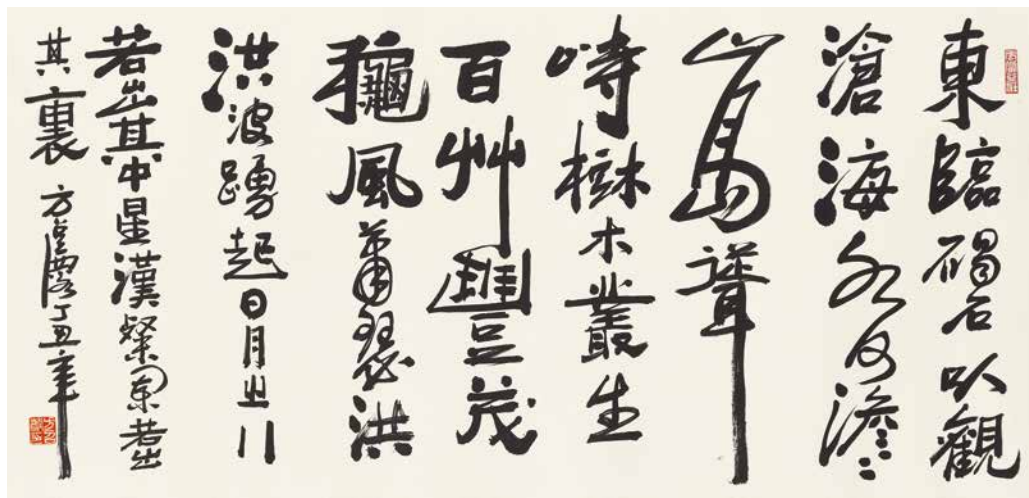 東臨碣石以觀
滄海水何澹〻
山島聳
峙樹木叢生
百艸豐茂
龝風蕭瑟洪
洪波踴起日月之行
若出其中星漢粲爛若出
其裏 方 丁丑年